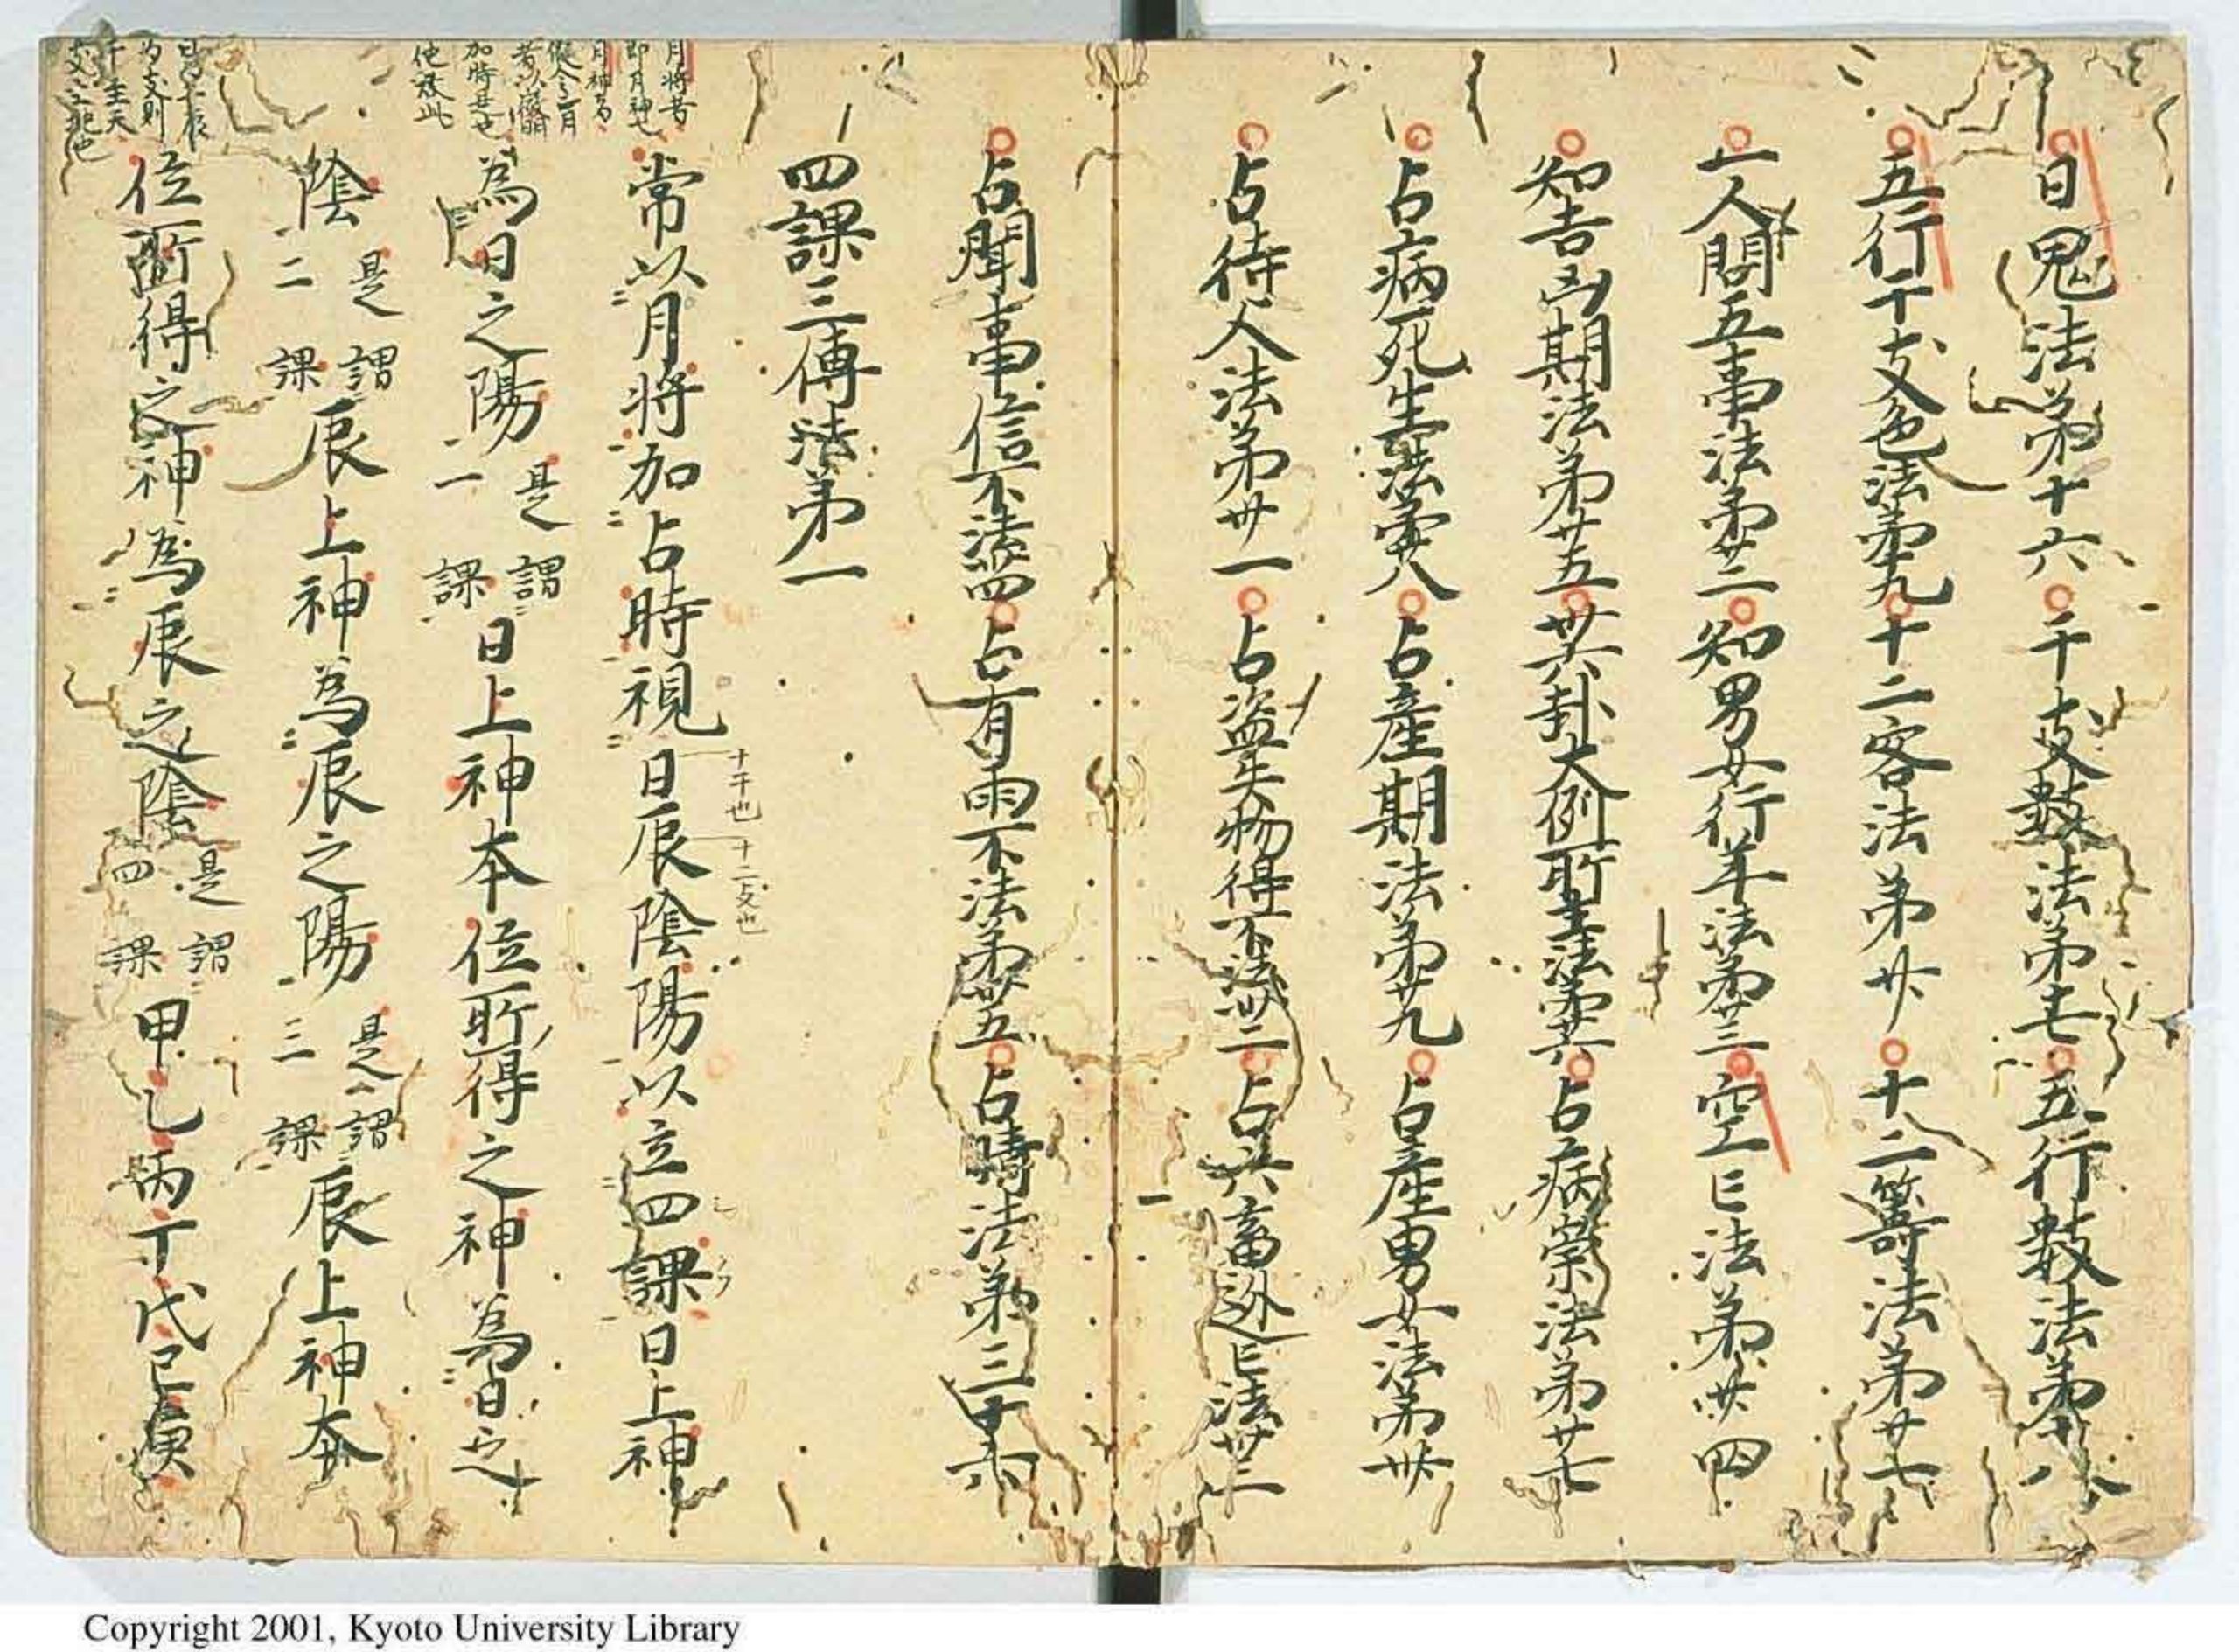 日鬼法第十六 干支數法第十七 五行數法第十八
五行干支色法第十九 十二客法第廿 十二籌法第廿一
一人問五事法第廿二 知男女行年法第廿三 空亡法第廿四
知吉凶期法第廿五 卅六卦大例所主法第廿六 占病祟法第廿七
占病死生法第廿八 占產期法第廿九 占產男女法第卅
占待人法第卅一 占盜失物得不法卅二 占六畜逃亡法卅三
占聞事信不法卅四 占有雨不法第卅五 占晴法第三十六
四課三傳法第一
常以月將加占時視日辰陰陽以立四課日上神
十干也 十二支也
為日之陽 是謂一課 日上神本位所得之神為日之
陰 是謂二課 辰上神為辰之陽 是謂三課 辰上神本
位所得之神為辰之陰 是謂四課 甲乙丙丁戊己庚
月將者
即月神也
月神者
假令正月
加時是也
他效此
Copyright 2001, Kyoto University Library